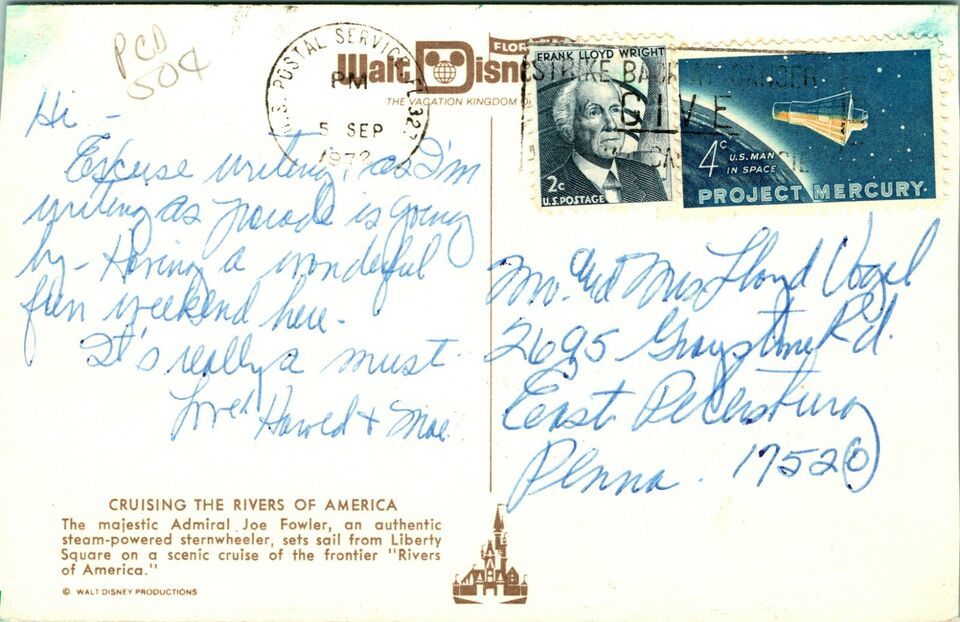 PCD
504
U.S. POSTAL SERVICE, FL 327
PM
5 SEP
1972
Walt Disn
FLOR
THE VACATION KINGDOM O
FRANK LLOYD WRIGHT
2c
U.S. POSTAGE
STRIKE BACK AT CANCER
GIVE
4c
U.S. MAN
IN SPACE
PROJECT MERCURY
Hi -
Excuse writing, as I'm
writing as parade is going
by - Having a wonderful
fun weekend here.
It's really a must.
Love, Harold + Mae.
Mr. and Mrs Lloyd Vogel
2695 Graystone Rd.
East Petersburg
Penna. 17520
CRUISING THE RIVERS OF AMERICA
The majestic Admiral Joe Fowler, an authentic
steam-powered sternwheeler, sets sail from Liberty
Square on a scenic cruise of the frontier "Rivers
of America."
© WALT DISNEY PRODUCTIONS